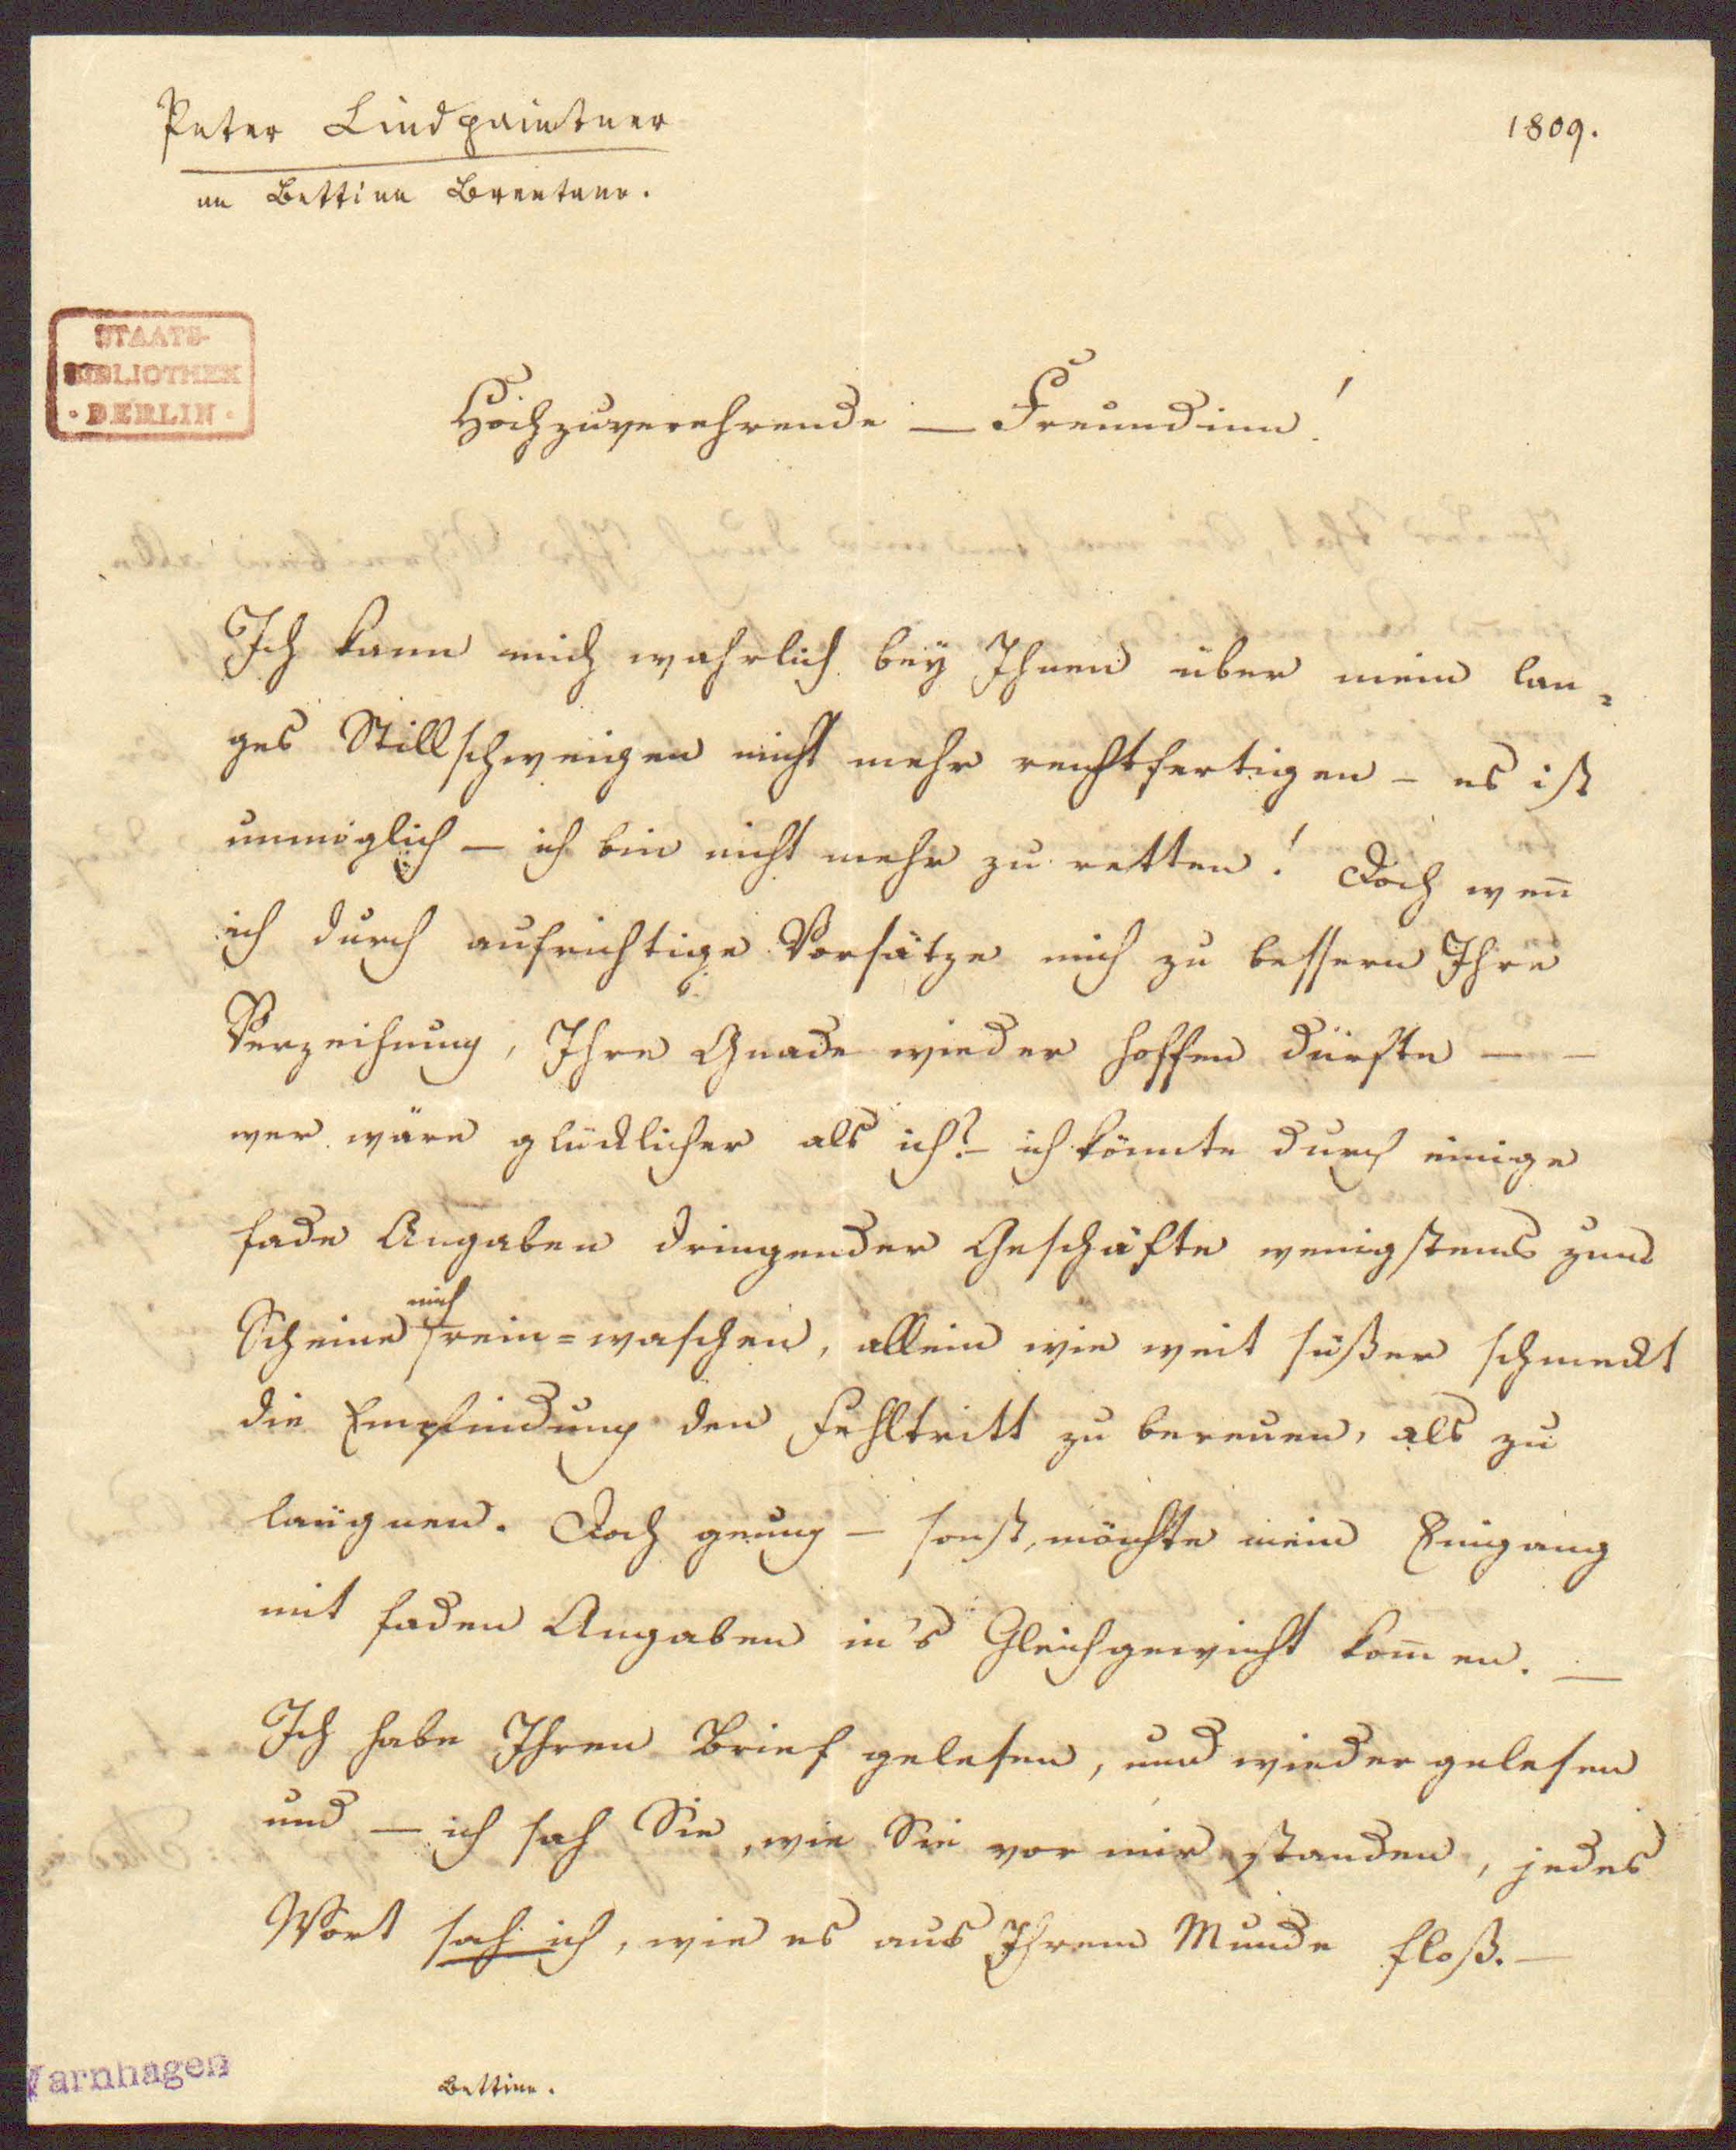 Peter Lindpaintner
an Bettina Brentano.
1809.
STAATS-
BIBLIOTHEK
· BERLIN ·
Hochzuverehrende – Freundinn!
Ich kann mich wahrlich bey Ihnen über mein lan-
ges Stillschweigen nicht mehr rechtfertigen – es ist
unmöglich – ich bin nicht mehr zu retten! Doch wen̄
ich durch aufrichtige Vorsätze mich zu bessern Ihre
Verzeihung, Ihre Gnade wieder hoffen dürfte – –
wer wäre glücklicher als ich? – ich könnte durch einige
fade Angaben dringender Geschäfte wenigstens zum
Scheine mich rein=waschen, allein wie weit süßer schmeckt
die Empfindung den Fehltritt zu bereuen, als zu
laügnen. Doch genug – sonst möchte mein Eingang
mit faden Angaben in's Gleichgewicht kom̄en. –
Ich habe Ihren Brief gelesen, und wieder gelesen
und – ich sah Sie, wie Sie vor mir standen, jedes
Wort sah ich, wie es aus Ihrem Munde floß. –
Varnhagen
Bettina.